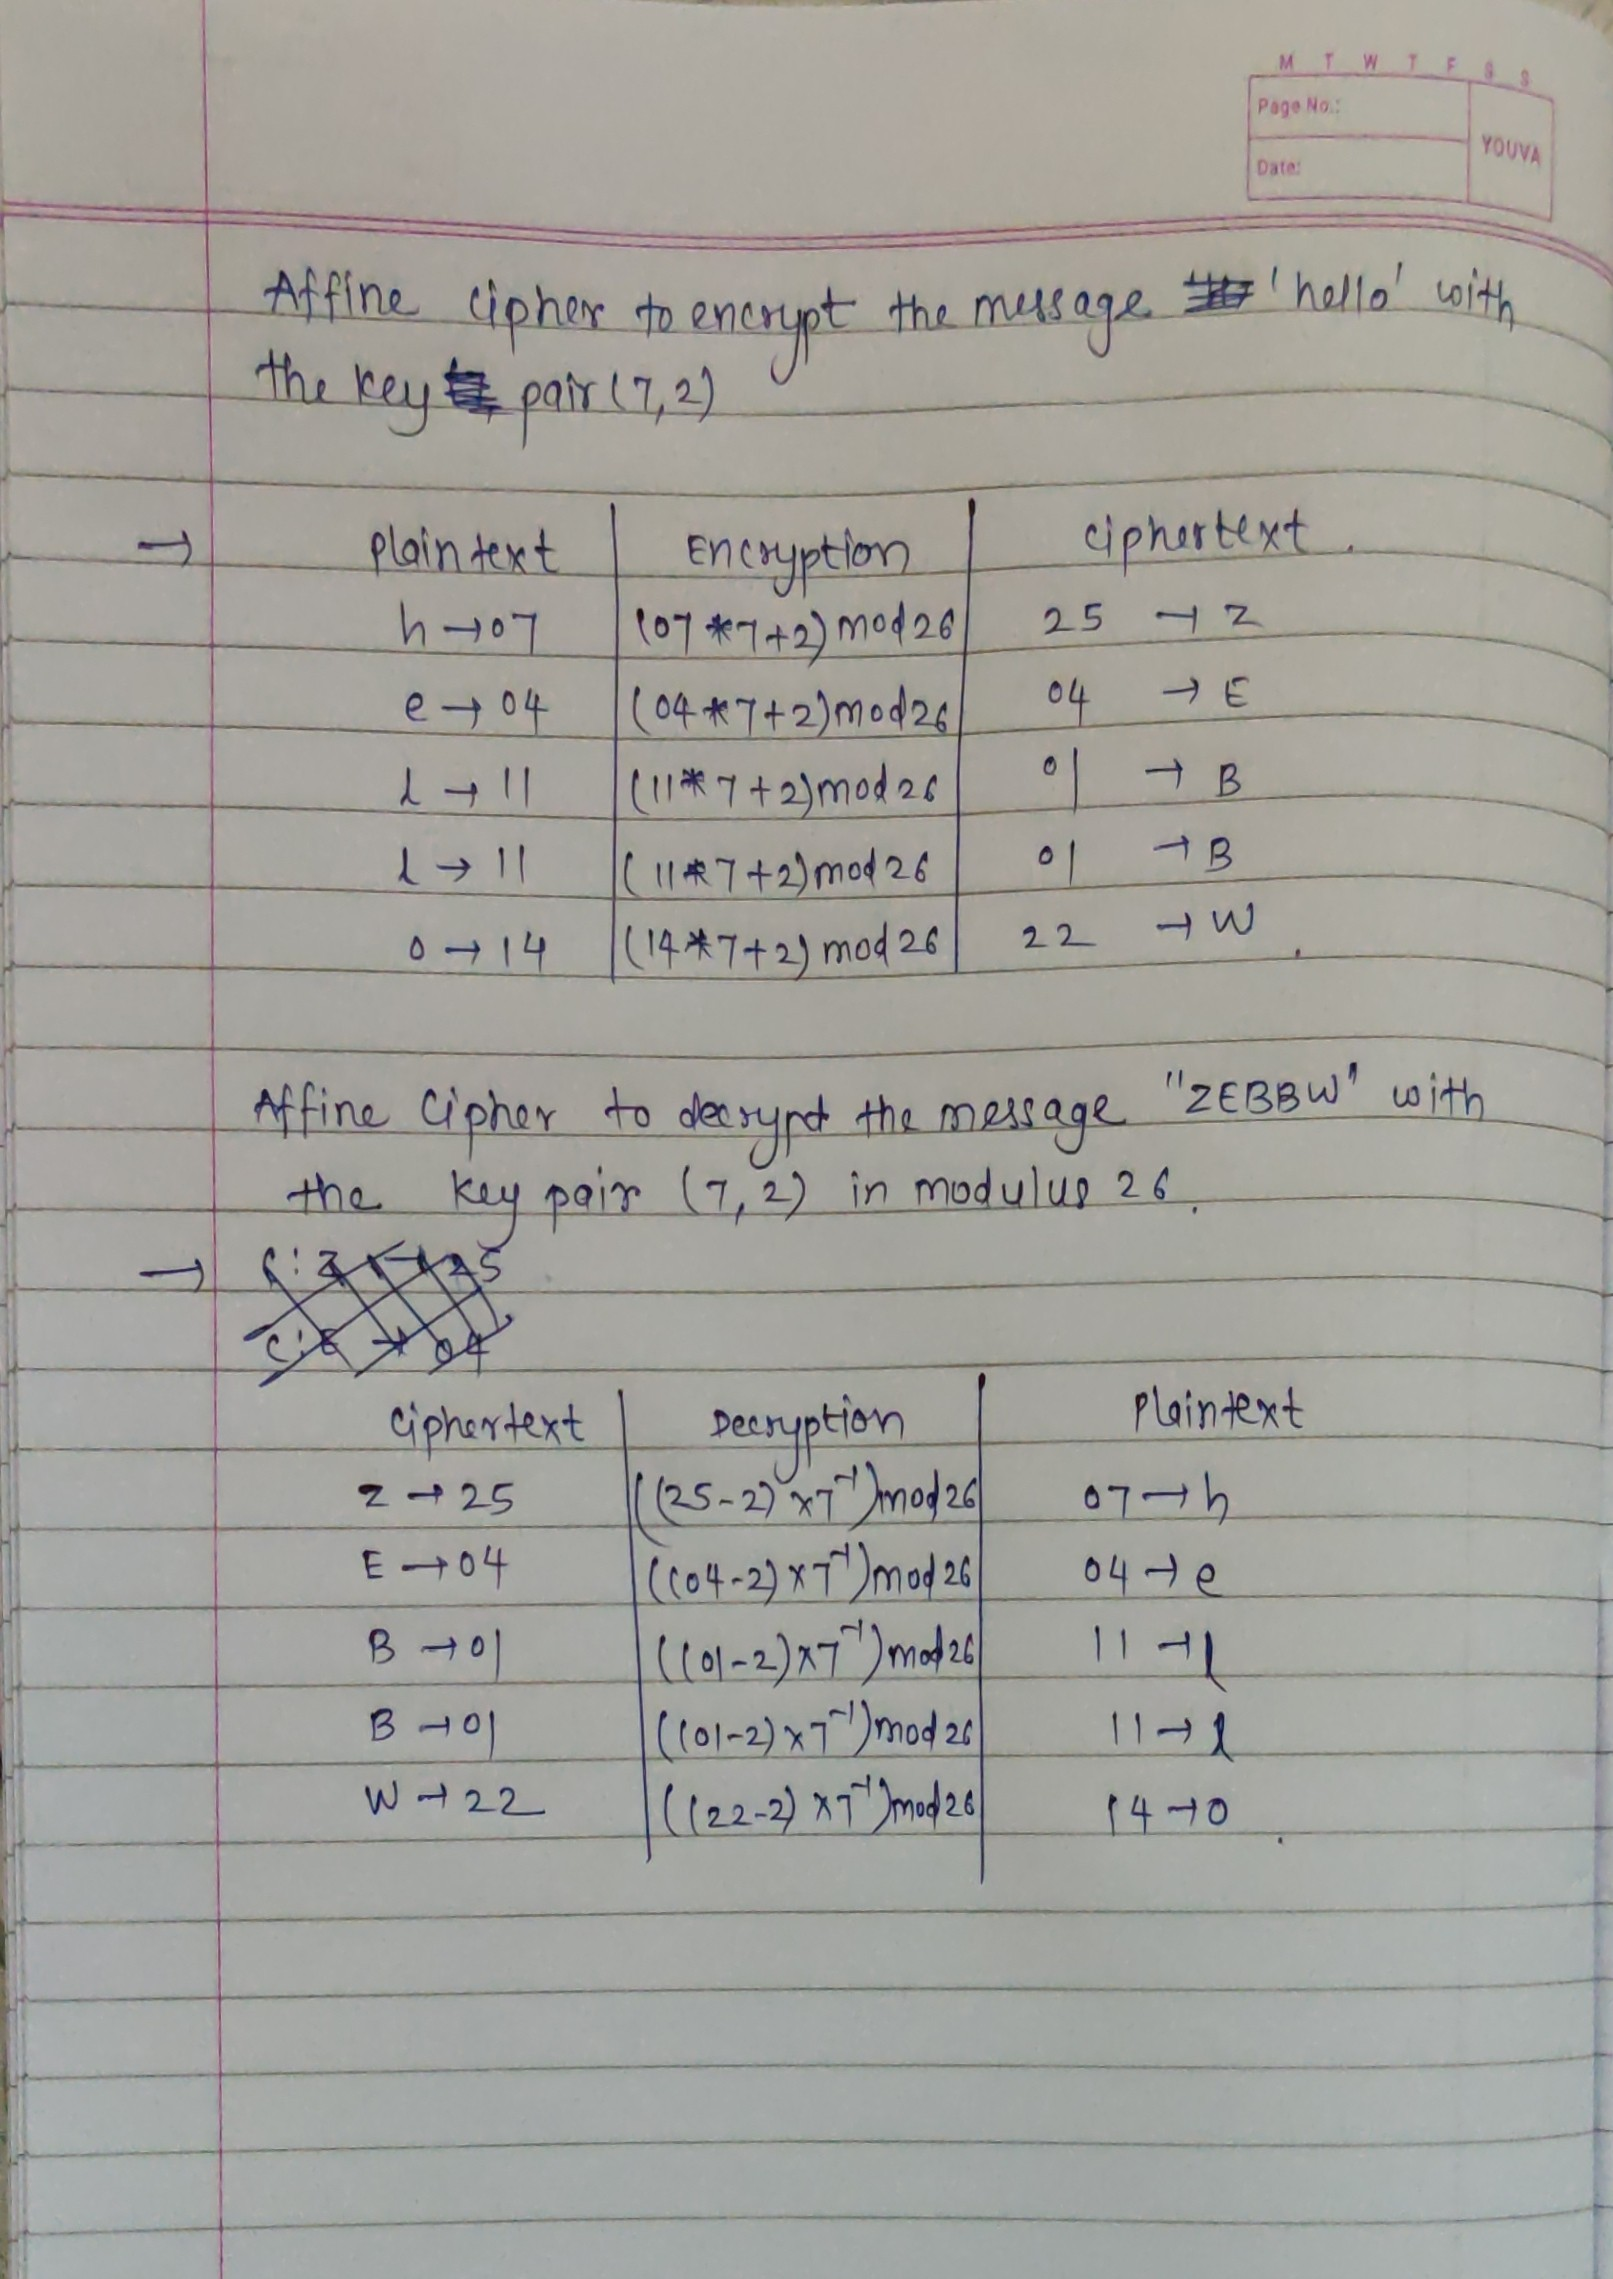 M T W T F S S
Page No.:
YOUVA
Date:
Affine cipher to encrypt the message 'hello' with
the key pair (7,2)
→ plaintext | Encryption | ciphertext.
h → 07 | (07 * 7 + 2) mod 26 | 25 → Z
e → 04 | (04 * 7 + 2) mod 26 | 04 → E
l → 11 | (11 * 7 + 2) mod 26 | 01 → B
l → 11 | (11 * 7 + 2) mod 26 | 01 → B
o → 14 | (14 * 7 + 2) mod 26 | 22 → W.
Affine Cipher to decrypt the message "ZEBBW" with
the key pair (7,2) in modulus 26.
→ C: Z → 25
C: E → 04
Ciphertext | Decryption | Plaintext
Z → 25 | ((25-2) × 7⁻¹) mod 26 | 07 → h
E → 04 | ((04-2) × 7⁻¹) mod 26 | 04 → e
B → 01 | ((01-2) × 7⁻¹) mod 26 | 11 → l
B → 01 | ((01-2) × 7⁻¹) mod 26 | 11 → l
W → 22 | ((22-2) × 7⁻¹) mod 26 | 14 → o.